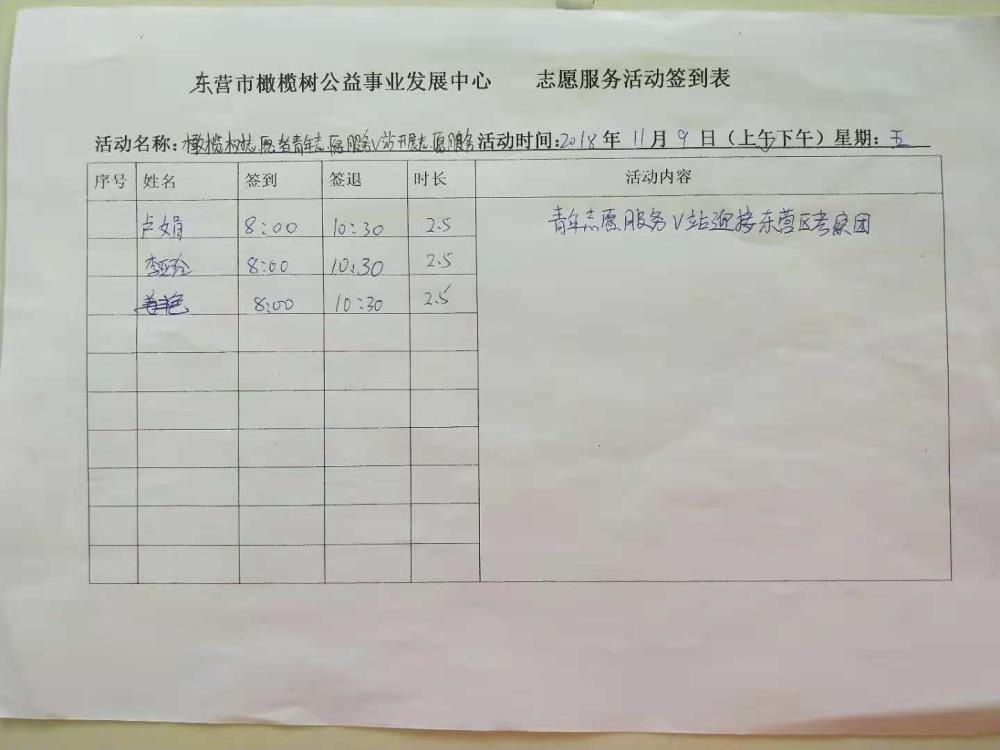 东营市橄榄树公益事业发展中心 志愿服务活动签到表
活动名称：橄榄树志愿者青年志愿服务V站开展志愿服务 活动时间：2018年11月9日（上午下午）星期：五
序号 姓名 签到 签退 时长 活动内容
卢娟 8:00 10:30 2.5 青年志愿服务V站迎接东营区考察团
李亚玲 8:00 10:30 2.5
8:00 10:30 2.5